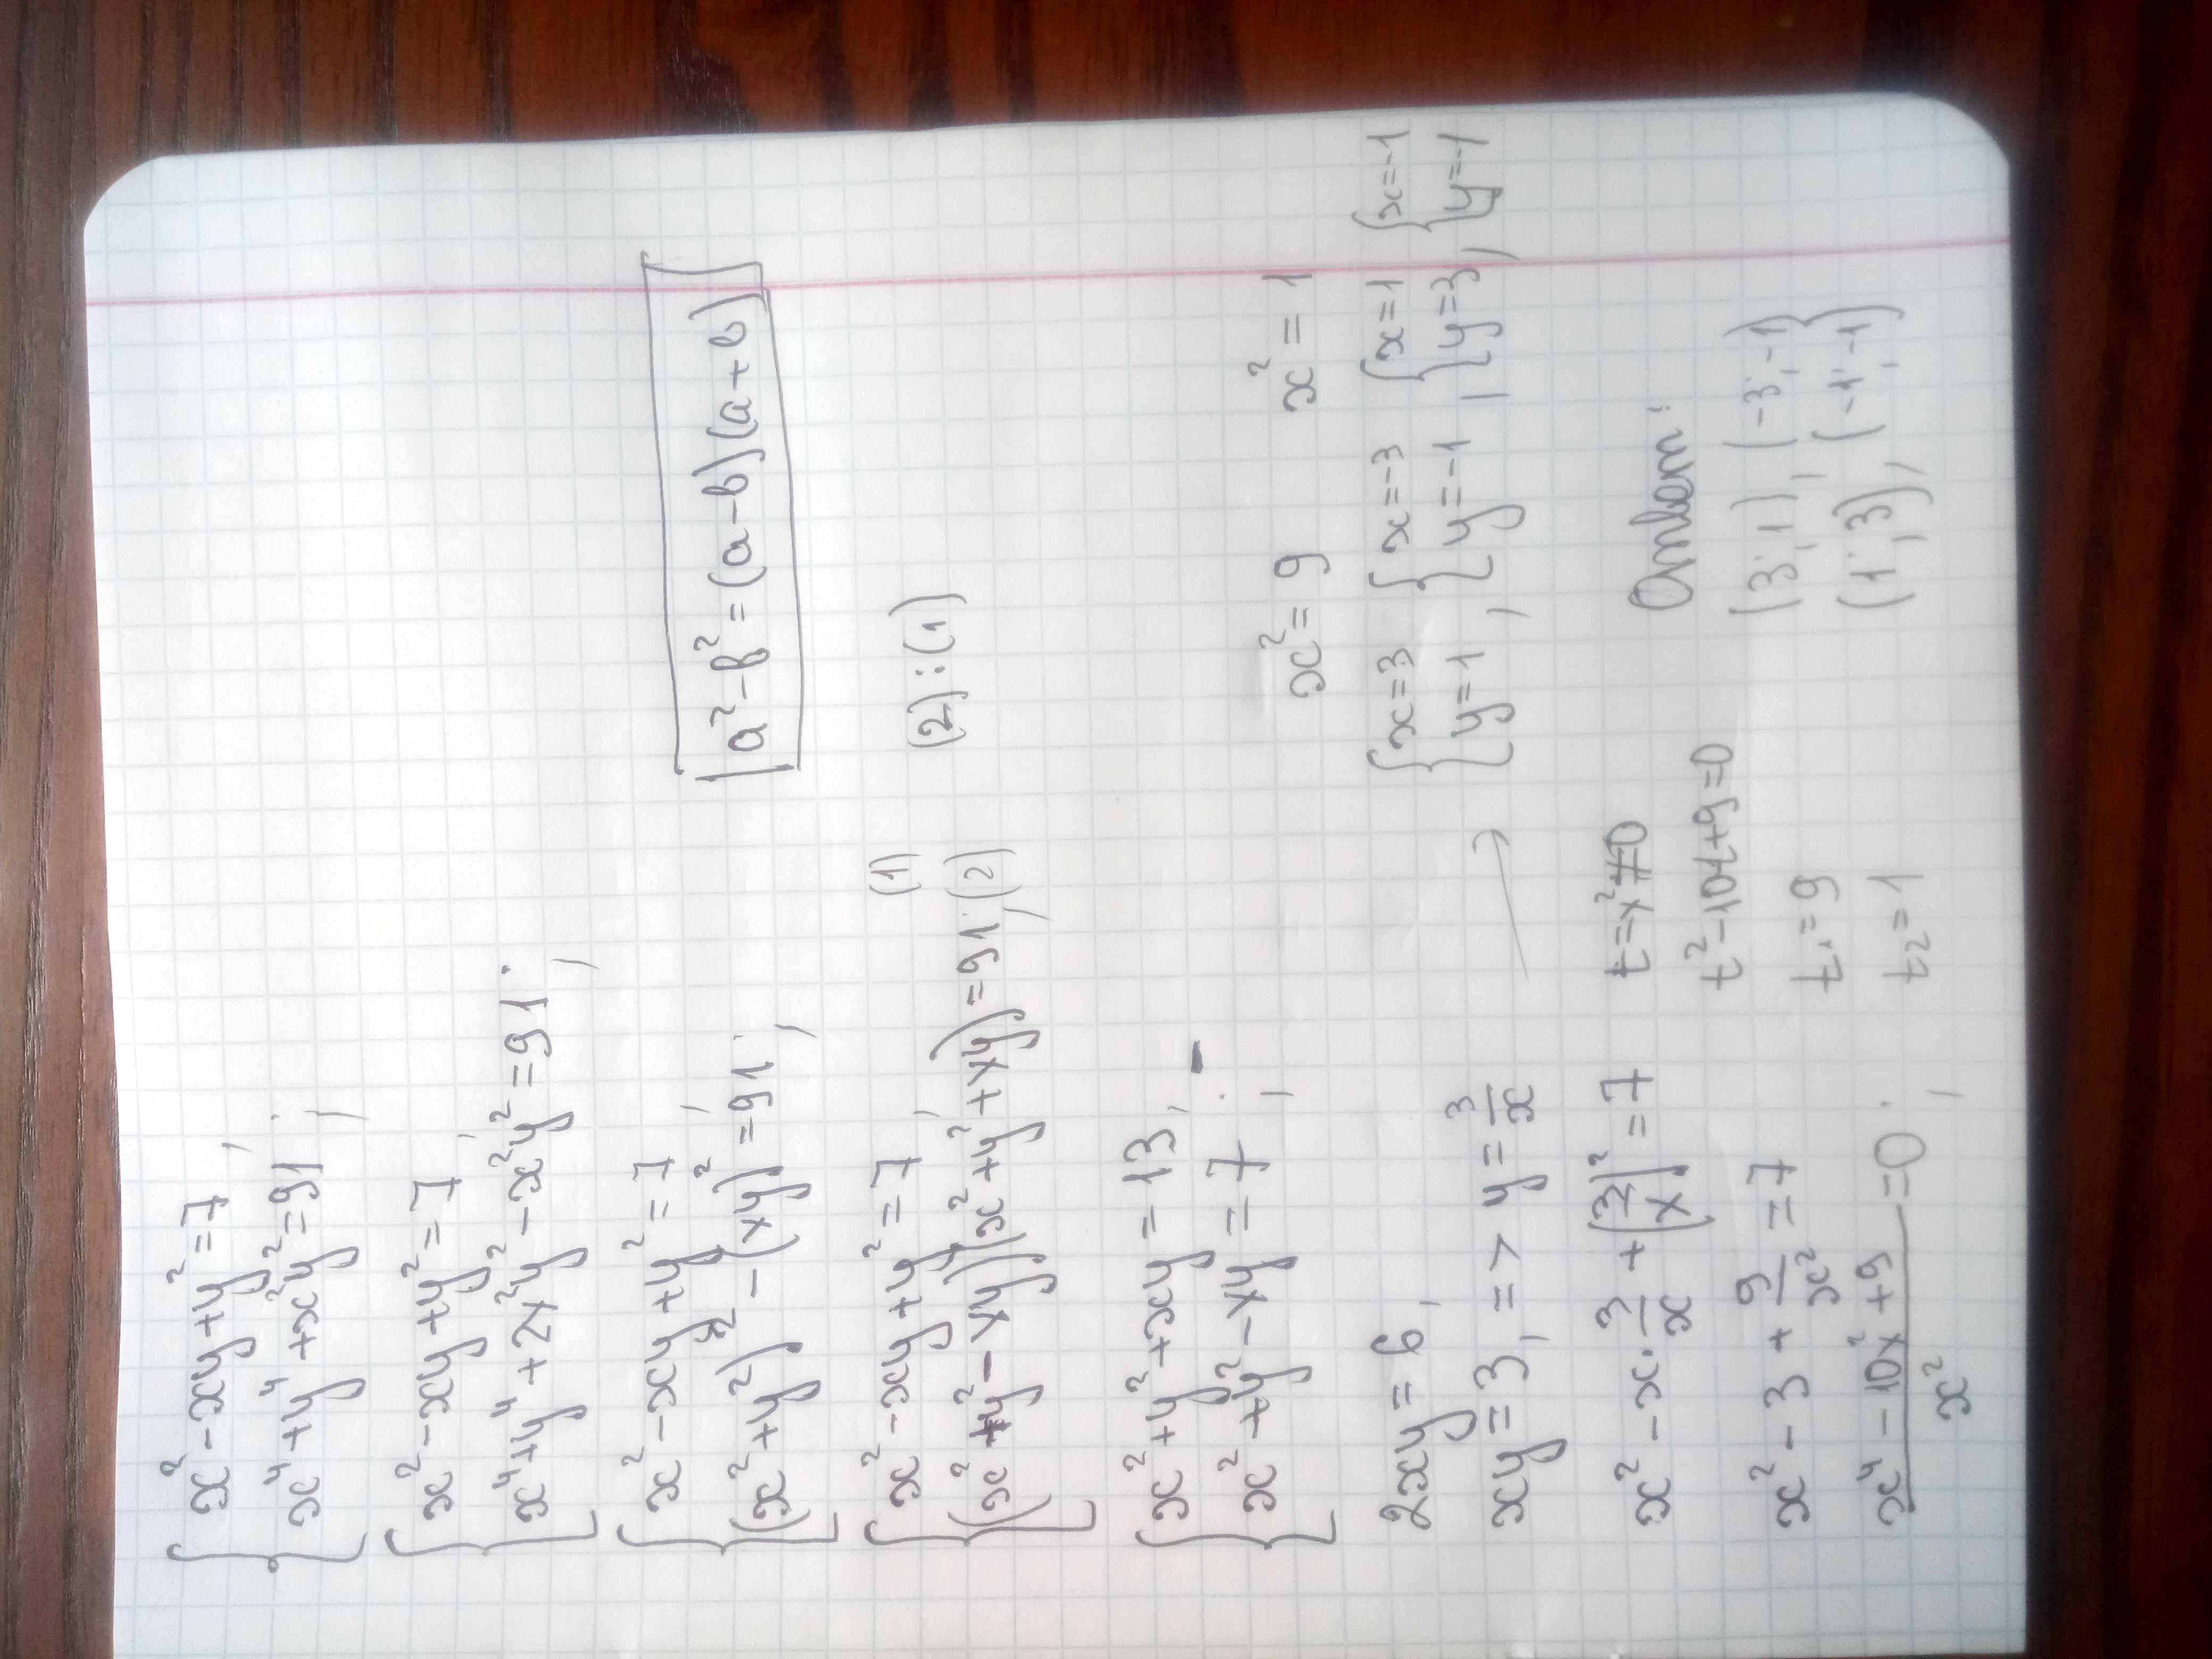 { x² - xy + y² = 7,
x⁴ + y⁴ + x²y² = 91;
{ x² - xy + y² = 7,
x⁴ + y⁴ + 2x²y² - x²y² = 91;
{ x² - xy + y² = 7,
(x² + y²)² - (xy)² = 91;
a² - b² = (a - b)(a + b)
{ x² - xy + y² = 7, (1)
(x² + y² - xy)(x² + y² + xy) = 91; (2)
(2):(1)
{ x² + y² + xy = 13,
x² + y² - xy = 7; -
2xy = 6,
xy = 3, => y = 3/x
x² - x · 3/x + (3/x)² = 7
x² - 3 + 9/x² = 7
(x⁴ - 10x² + 9)/x² = 0;
t = x² ≠ 0
t² - 10t + 9 = 0
t₁ = 9
t₂ = 1
x² = 9 x² = 1
{ x = 3 { x = -3 { x = 1 { x = -1
y = 1, y = -1, y = 3, y = -1
Ответ:
(3; 1), (-3; -1)
(1; 3), (-1; -1)